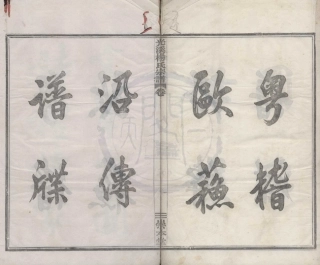 粤稽
歐蘇
沿傳
譜牒